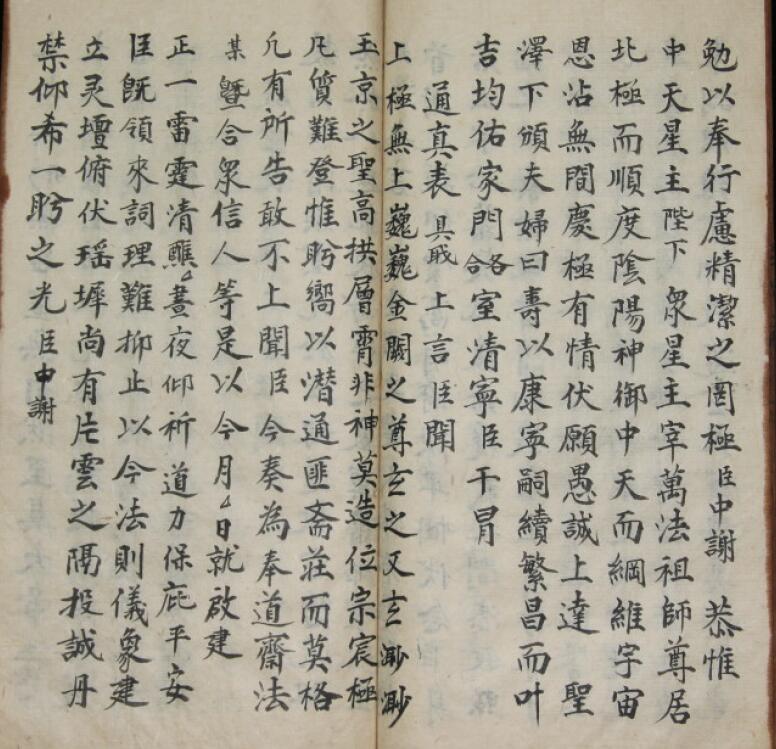 勉以奉行慮精潔之囹極臣中謝　恭惟
中天星主陛下衆星主宰萬法祖師尊居
北極而順度陰陽神御中天而綱維宇宙
恩沾無間慶極有情伏願愚誠上達　聖
澤下頒夫婦曰壽以康寧嗣續繁昌而叶
吉均佑家門合路室清寧臣干冒
通真表具戢上言臣聞
上極無上巍巍金闕之尊玄之又玄渺渺
玉京之聖高拱層霄非神莫造位宗宸極
凡質難登惟肹嚮以潛通匪斋莊而莫格
凡有所告敢不上聞臣今奏為奉道齋法
某曁合衆信人等是以今月厶日就啟建
正一雷霆清醮厶晝夜仰祈道力保庇平安
臣既領來詞理難抑止以今法則儀象建
立灵壇俯伏瑶墀尚有片雲之隔投誠丹
禁仰希一肹之光臣中謝